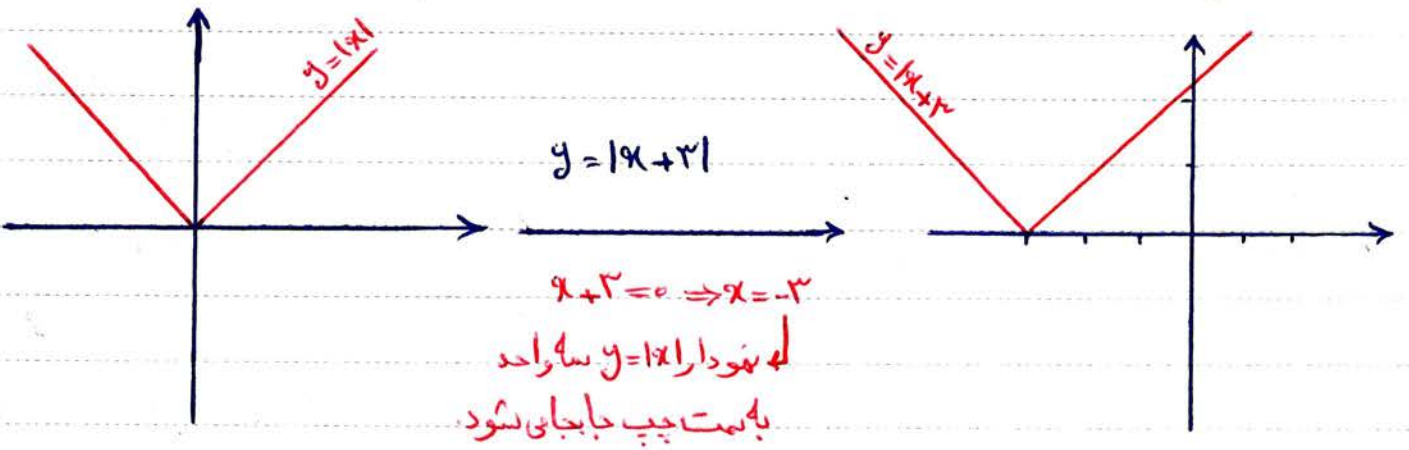 y=|x|
y=|x+۳
y=|x+۳|
x+۳=۰ ⇒ x=-۳
نمودار y=|x| سه واحد
به سمت چپ جابجا می شود